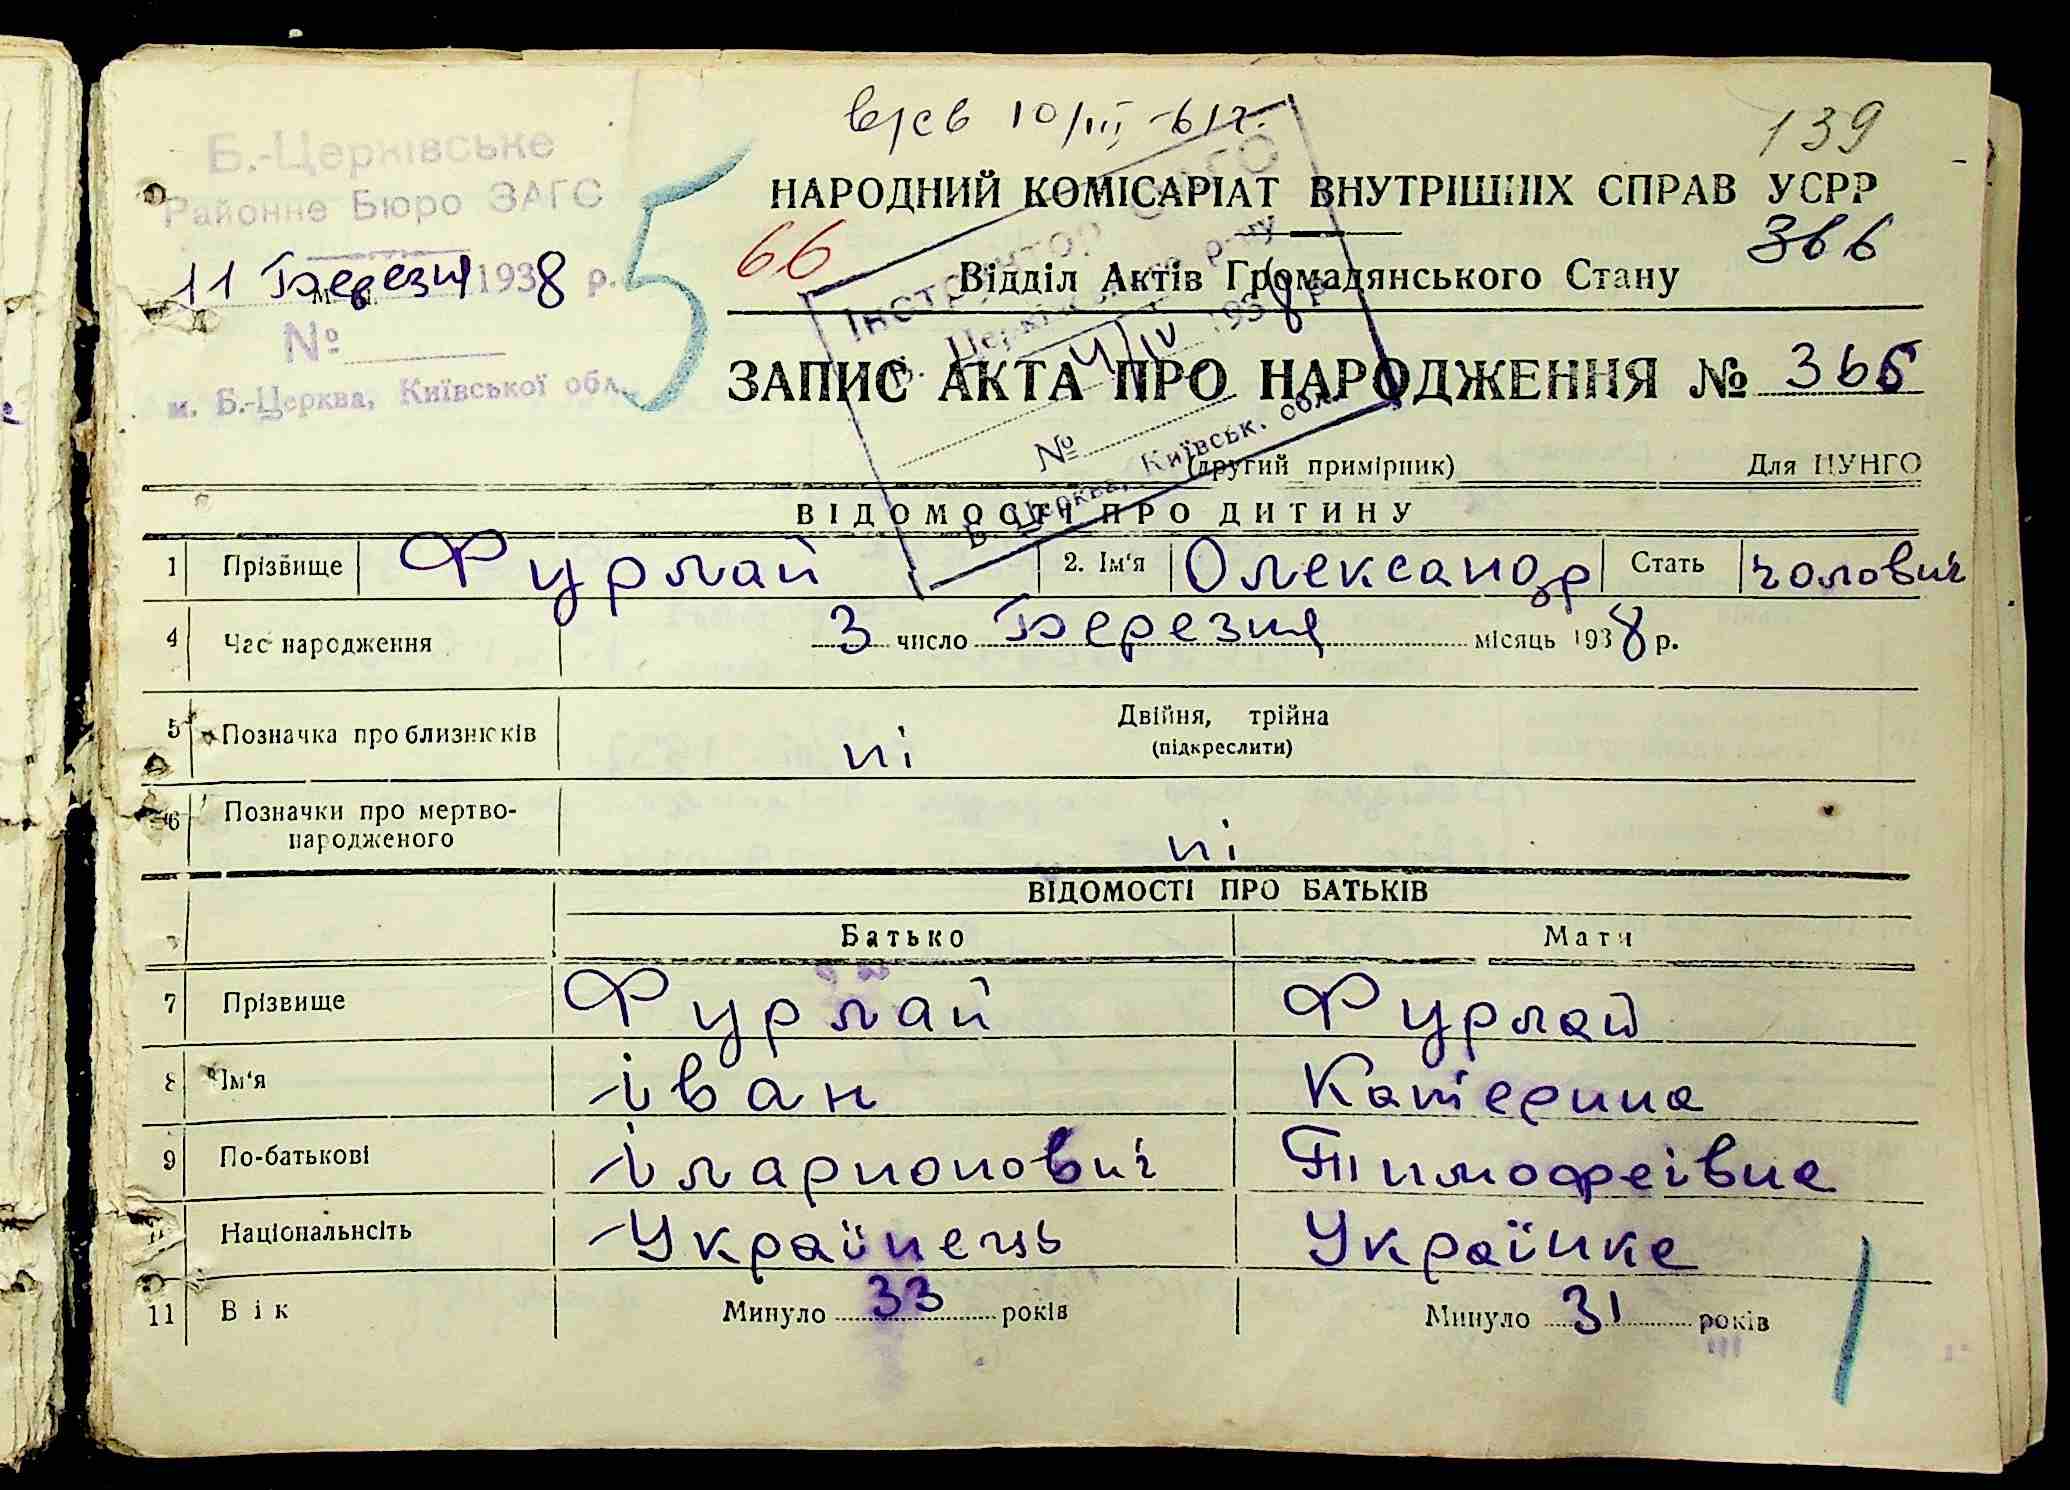 10/III 61 г.
139
Б.-Церківське
Районне Бюро ЗАГС
11 Березня 1938 р.
№
м. Б.-Церква, Київської обл.
5
66
НАРОДНИЙ КОМІСАРІАТ ВНУТРІШНІХ СПРАВ УСРР
366
Відділ Актів Громадянського Стану
Інструктор
4/IV 1938 р.
№
Б. Церква, Київськ. обл.
ЗАПИС АКТА ПРО НАРОДЖЕННЯ № 366
(другий примірник) Для ЦУНГО
ВІДОМОСТІ ПРО ДИТИНУ
1 Прізвище Фурлай 2. Ім'я Олександр Стать чолович
4 Час народження 3 число Березня місяць 1938 р.
5 Позначка про близнюків ні Двійня, трійна
(підкреслити)
6 Позначки про мертво-
народженого ні
ВІДОМОСТІ ПРО БАТЬКІВ
Батько Мати
7 Прізвище Фурлай Фурлай
8 Ім'я Іван Катерина
9 По-батькові Іларионович Тимофеївна
Національність Українець Українка
11 Вік Минуло 33 років Минуло 31 років